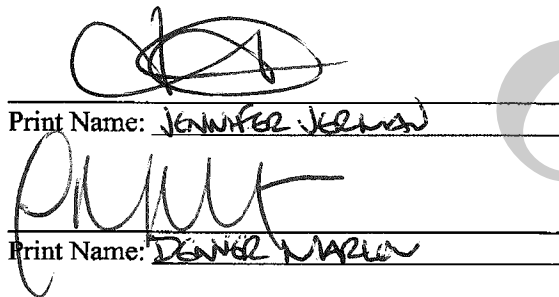 Print Name: JENNIFER JERMAN
Print Name: DENVER MARLOW